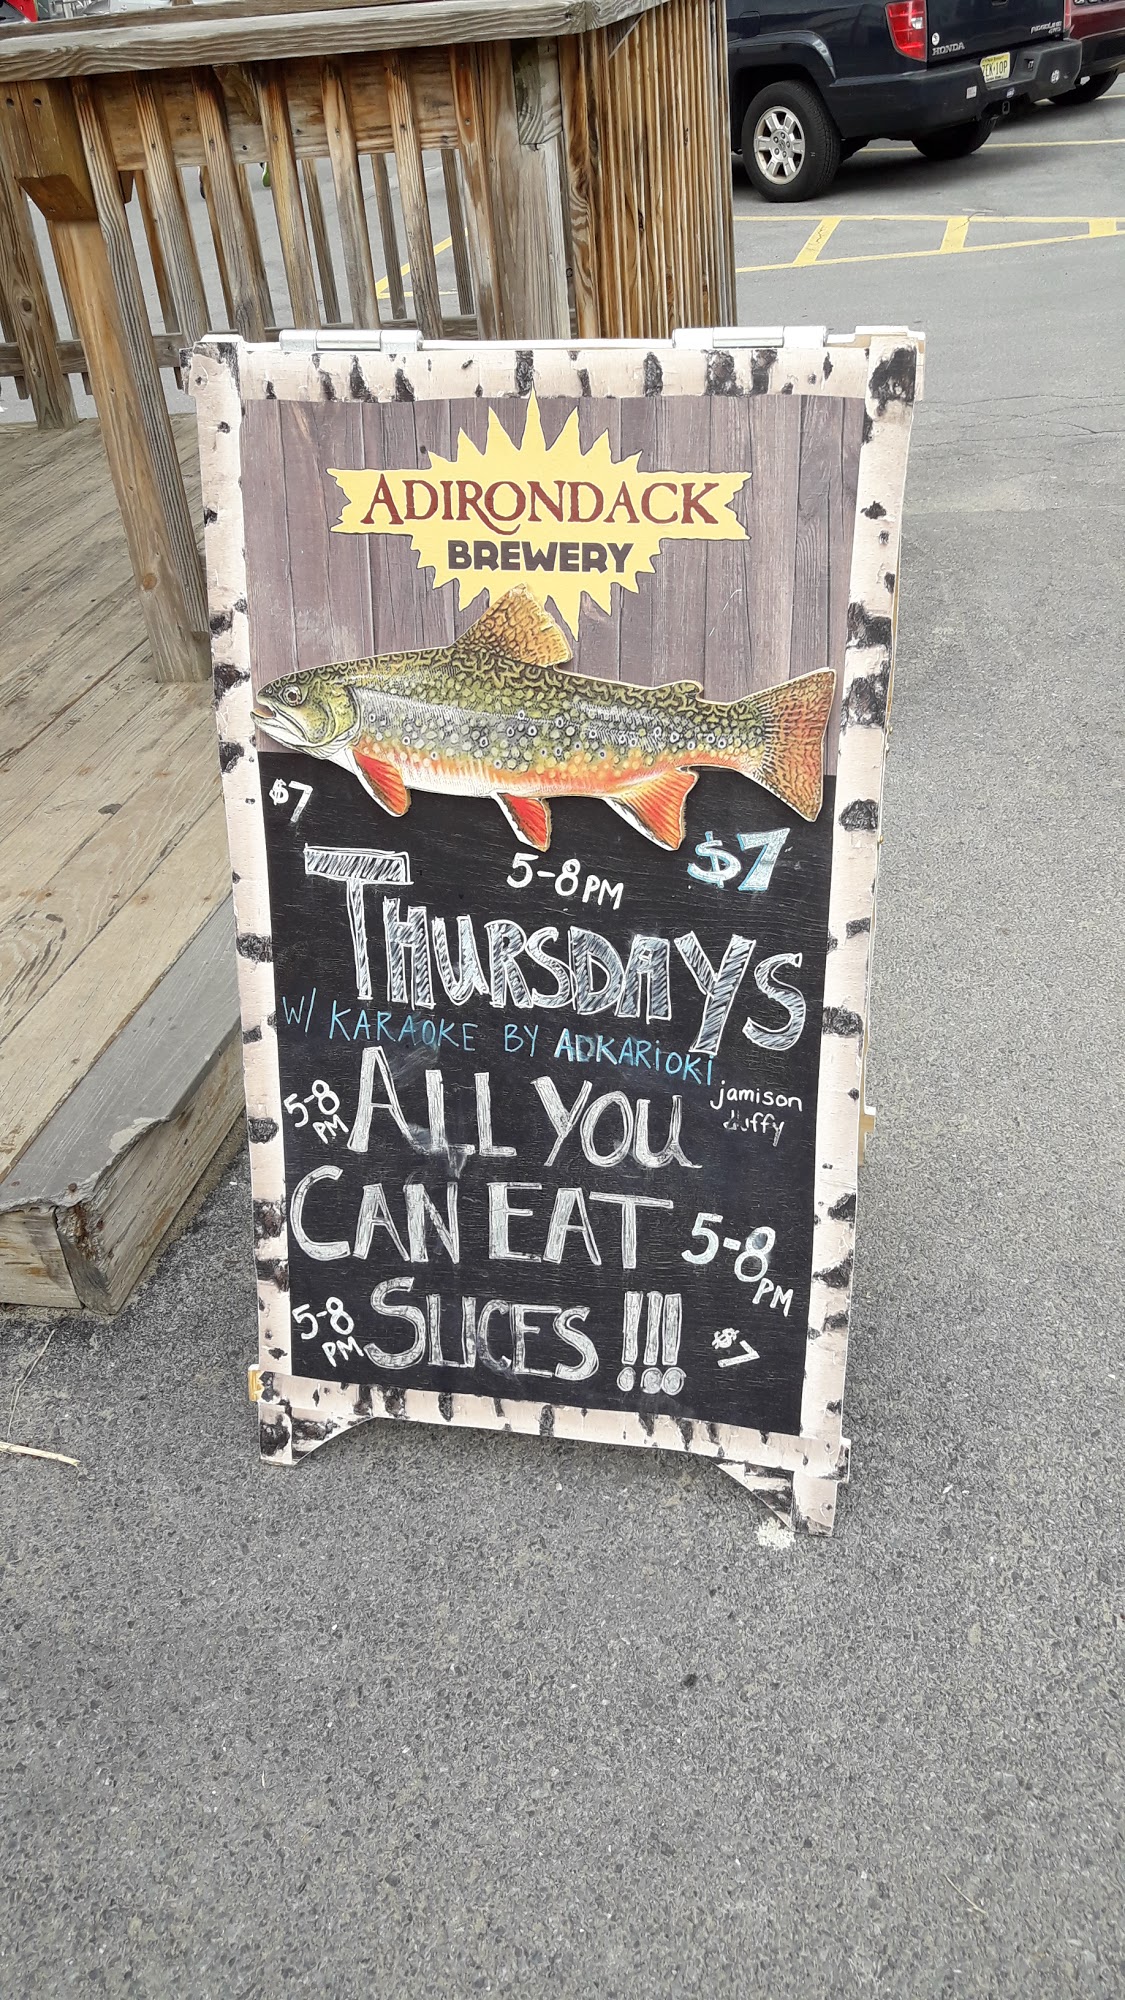 HONDA
ZEK·10P
ADIRONDACK
BREWERY
$7
5-8PM
$7
THURSDAYS
W/ KARAOKE BY ADKARIOKI
jamison
duffy
5-8
PM
ALL YOU
CAN EAT
5-8
PM
5-8
PM
SLICES !!!
$7